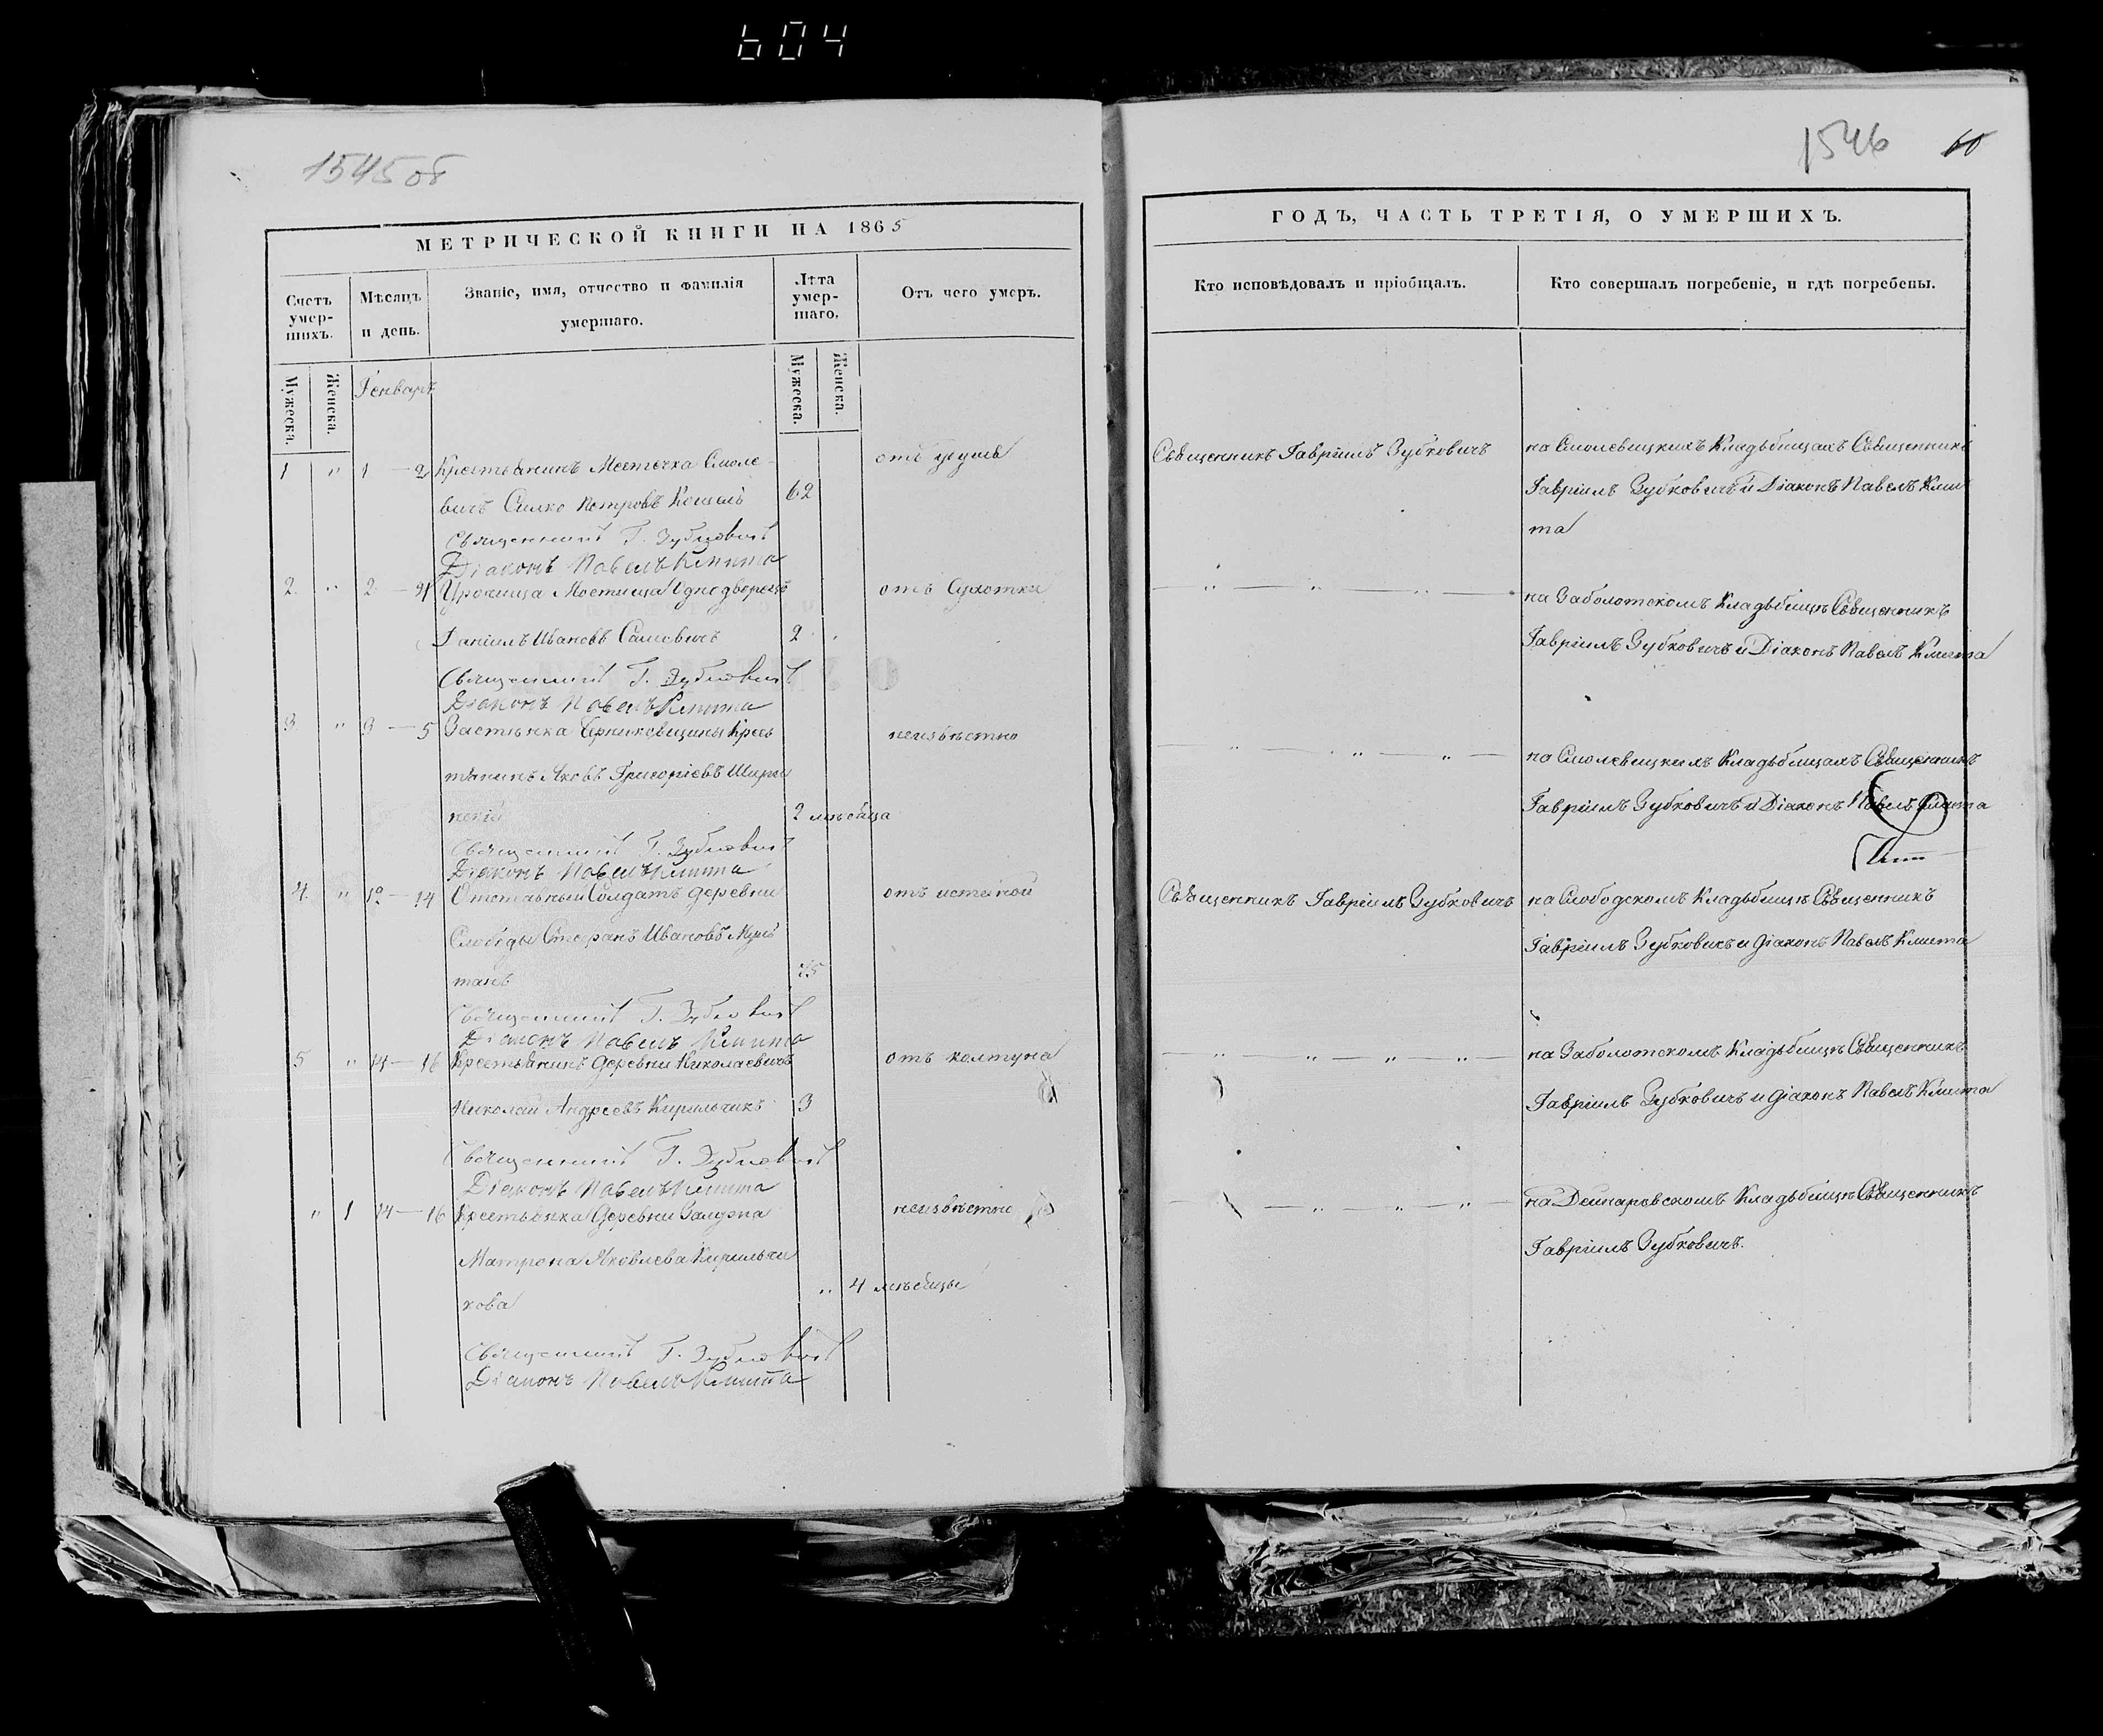 604
1545 об
МЕТРИЧЕСКОЙ КНИГИ НА 1865
Счетъ умер-шихъ.
Мѣсяцъ и день.
Званіе, имя, отчество и фамилія умершаго.
Лѣта умер-шаго.
Отъ чего умеръ.
Мужеска.
Женска.
Генварь
Мужеска.
Женска.
1 " 1 — 2 Крестьянинъ Местечка Смоле-
вичъ Силко Петровъ 62
Священникъ Г. Зубковичъ
Діаконъ Павелъ Кмита
2. " 2 — Урочища Мостища Однодворецъ отъ Сухотки
Даніилъ Ивановъ 2
Священникъ Г. Зубковичъ
Діаконъ Павелъ Кмита
3 " 3 — 5 Застѣнка Крес неизвѣстно
тьянинъ Яковъ Григоріевъ
2 мѣсяца
Священникъ Г. Зубковичъ
Діаконъ Павелъ Кмита
4. " 12 — 14 Отставный Солдатъ деревни
Слободы Стефанъ Ивановъ
75
Священникъ Г. Зубковичъ
Діаконъ Павелъ Кмита
5 " 14 — 16 Крестьянинъ деревни Николаевичъ отъ колтуна
Николай Андреевъ Кирильчикъ 3
Священникъ Г. Зубковичъ
Діаконъ Павелъ Кмита
" 1 14 — 16 Крестьянка Деревни неизвѣстно
Матрона Яковлева Кирильчи
кова " 4 мѣсяцы
Священникъ Г. Зубковичъ
Діаконъ Павелъ Кмита
1546 60
ГОДЪ, ЧАСТЬ ТРЕТІЯ, О УМЕРШИХЪ.
Кто исповѣдовалъ и пріобщалъ.
Кто совершалъ погребеніе, и гдѣ погребены.
Священникъ Гавріилъ Зубковичъ на Смолевицкихъ Кладьбищахъ Священникъ
Гавріилъ Зубковичъ и Діаконъ Павелъ Кми
та
— " — " — " — на Заболотскомъ Кладьбищѣ Священникъ
Гавріилъ Зубковичъ и Діаконъ Павелъ Кмита
— " — " — " — на Смолевицкихъ Кладьбищахъ Священникъ
Гавріилъ Зубковичъ и Діаконъ Павелъ Кмита
Священникъ Гавріилъ Зубковичъ на Слободскомъ Кладьбищѣ Священникъ
Гавріилъ Зубковичъ и діаконъ Павелъ Кмита
— " — " — " — " — на Заболотскомъ Кладьбищѣ Священникъ
Гавріилъ Зубковичъ и діаконъ Павелъ Кмита
— " — " — " — на Кладьбищѣ Священникъ
Гавріилъ Зубковичъ.